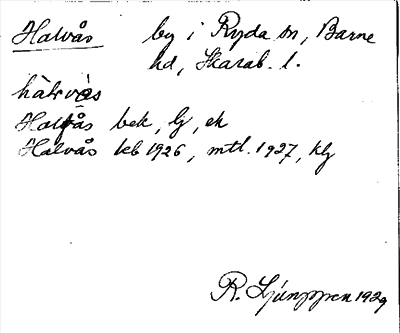 Halvås by i Ryda sn, Barne
hd, Skarab. l.
hàlvå̀s
Halvås bek, Gj, ek
Halvås kb 1926, mtl. 1927, klg
R. Ljunggren 1929